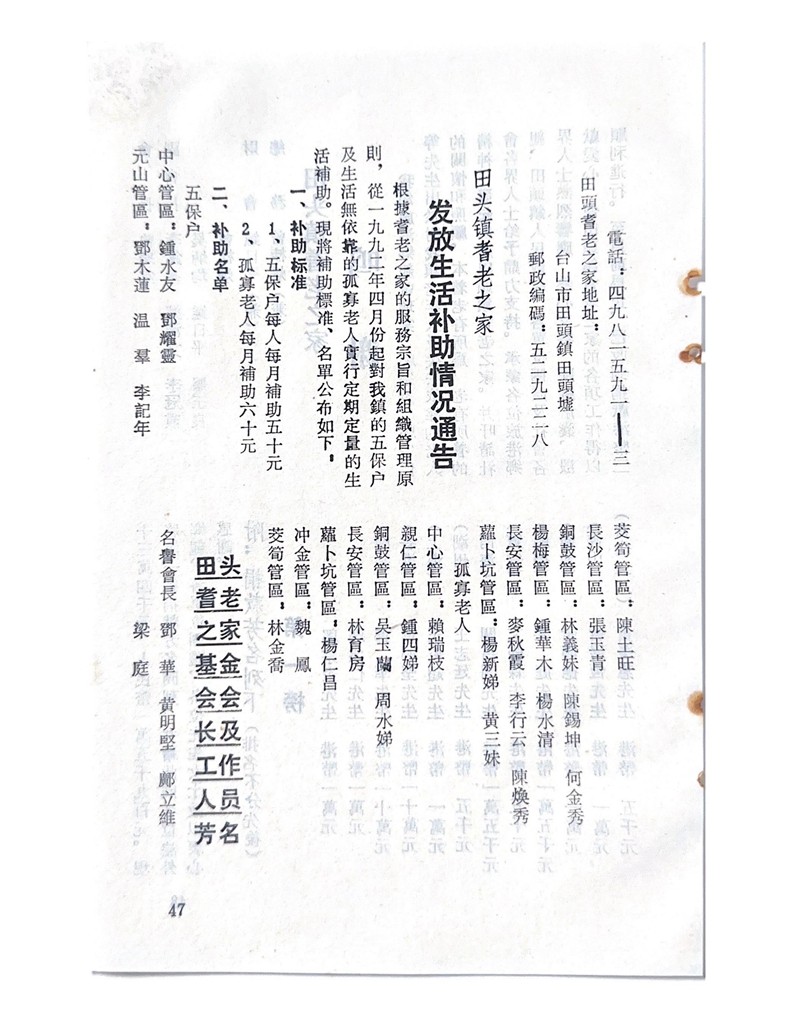 電話：四九八二五九一——三一
田頭耆老之家地址：
台山市田頭鎮田頭墟
郵政編碼：五二九二二八
田头镇耆老之家
发放生活补助情况通告
根據耆老之家的服務宗旨和組織管理原
則，從一九九二年四月份起對我鎮的五保户
及生活無依靠的孤寡老人實行定期定量的生
活補助。現將補助標准、名單公布如下：
一、补助标准
1、五保户每人每月補助五十元
2、孤寡老人每月補助六十元
二、补助名单
五保户
中心管區：鍾水友 鄧耀靈
元山管區：鄧木蓮 温羣 李記年
茭筍管區：陳土旺
長沙管區：張玉青
銅鼓管區：林義妹 陳錫坤 何金秀
楊梅管區：鍾華木 楊水清
長安管區：麥秋霞 李行云 陳煥秀
蘿卜坑管區：楊新娣 黄三妹
孤寡老人
中心管區：賴瑞枝
親仁管區：鍾四娣
銅鼓管區：吴玉蘭 周水娣
長安管區：林育房
蘿卜坑管區：楊仁昌
冲金管區：魏鳳
茭筍管區：林金喬
田头
耆老
之家
基金
会会
长及
工作
人员
芳名
名譽會長 鄧華 黄明堅 鄺立維
梁庭
47